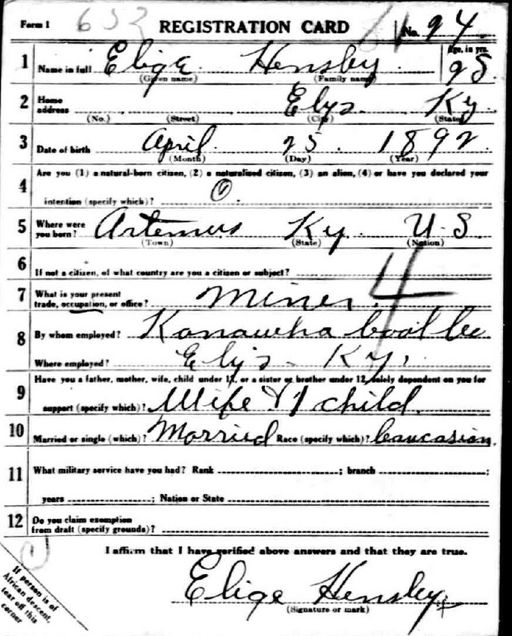 Form 1 653 REGISTRATION CARD No. 94
1 Name in full Elige Hensley Age, in yrs. 25
(Given name) (Family name)
2 Home address Elys Ky
(No.) (Street) (City) (State)
3 Date of birth April 25 1892
(Month) (Day) (Year)
4 Are you (1) a natural-born citizen, (2) a naturalized citizen, (3) an alien, (4) or have you declared your
intention (specify which)? 1
5 Where were you born? Artemus Ky. U S
(Town) (State) (Nation)
6 If not a citizen, of what country are you a citizen or subject?
7 What is your present trade, occupation, or office? Miner 4
8 By whom employed? Kanawha Coal Co
Where employed? Elys Ky.
9 Have you a father, mother, wife, child under 12, or a sister or brother under 12, solely dependent on you for
support (specify which)? Wife & 1 child
10 Married or single (which)? Married Race (specify which)? Caucasian
11 What military service have you had? Rank ; branch ;
years ; Nation or State
12 Do you claim exemption
from draft (specify grounds)?
I affirm that I have verified above answers and that they are true.
Elige Hensley
(Signature or mark)
If person is of
African descent,
tear off this
corner